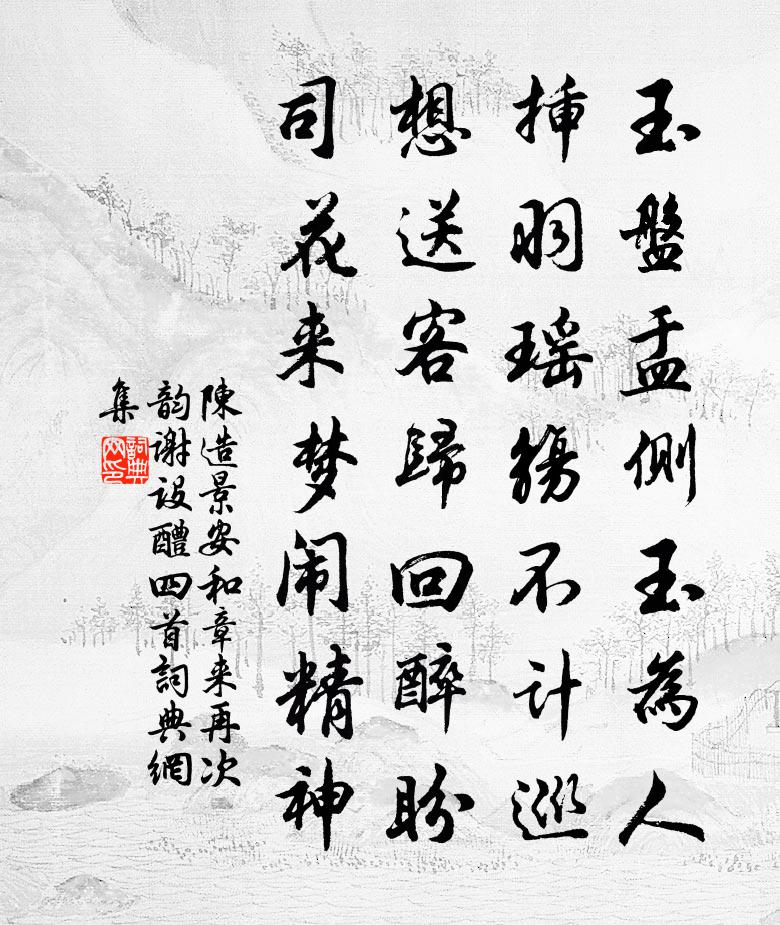 玉盤盂側玉為人
揷羽瑶觴不计巡
想送客歸回醉盼
司花来梦闹精神
陳造景安和章来再次
韵谢设醴四首詞典網
集
詞典網印